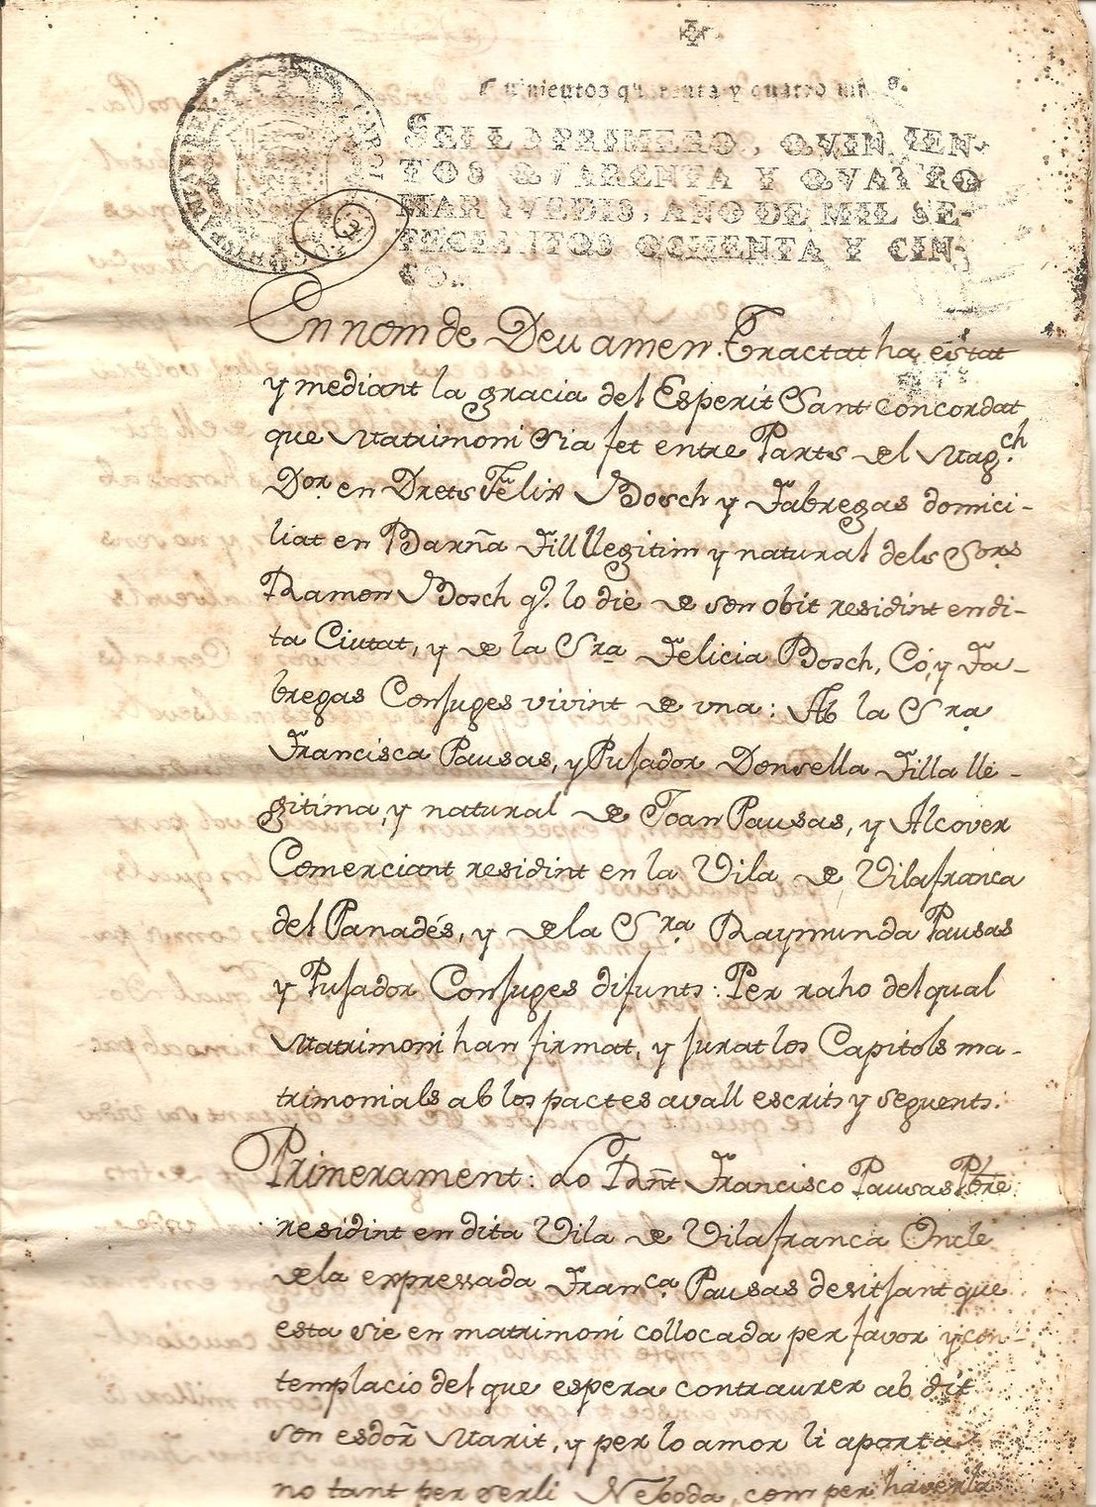 Quinientos quarenta y quatro mrs.
SELLO PRIMERO, QVINIEN-
TOS QVARENTA Y QVATRO
MARAVEDIS, AÑO DE MIL SE-
TECIENTOS OCHENTA Y CIN-
CO.
En nom de Deu amen. Tractat ha estat
y mediant la gracia del Esperit Sant concordat
que Matrimoni sia fet entre Parts del Mag.ch
Dor. en Drets Felix Bosch y Fabregas domici-
liat en Barña Fill llegitim y natural dels Sors
Ramon Bosch q.º lo die de son obit residint en di-
ta Ciutat, y de la Sra Felicia Bosch, Có, y Fa-
bregas Conjuges vivint de una: Ab la Sra
Francisca Pausas, y Pujador Donsella Filla lle-
gitima, y natural de Joan Pausas, y Alcover
Comerciant residint en la Vila de Vilafranca
del Panadés, y de la Sra Raymunda Pausas
y Pujador Conjuges difunts: Per raho del qual
Matrimoni han firmat, y jurat los Capitols ma-
trimonials ab los pactes avall escrits y seguents.
Primerament: Lo Rñt Francisco Pausas Pbre.
residint en dita Vila de Vilafranca Oncle
de la expressada Fran.ca Pausas desitjant que
esta sie en matrimoni collocada per favor y con-
templacio del que espera contraurer ab dit
son esdor̃ Marit, y per lo amor li aporta
no tant per serli Neboda, com per haverla